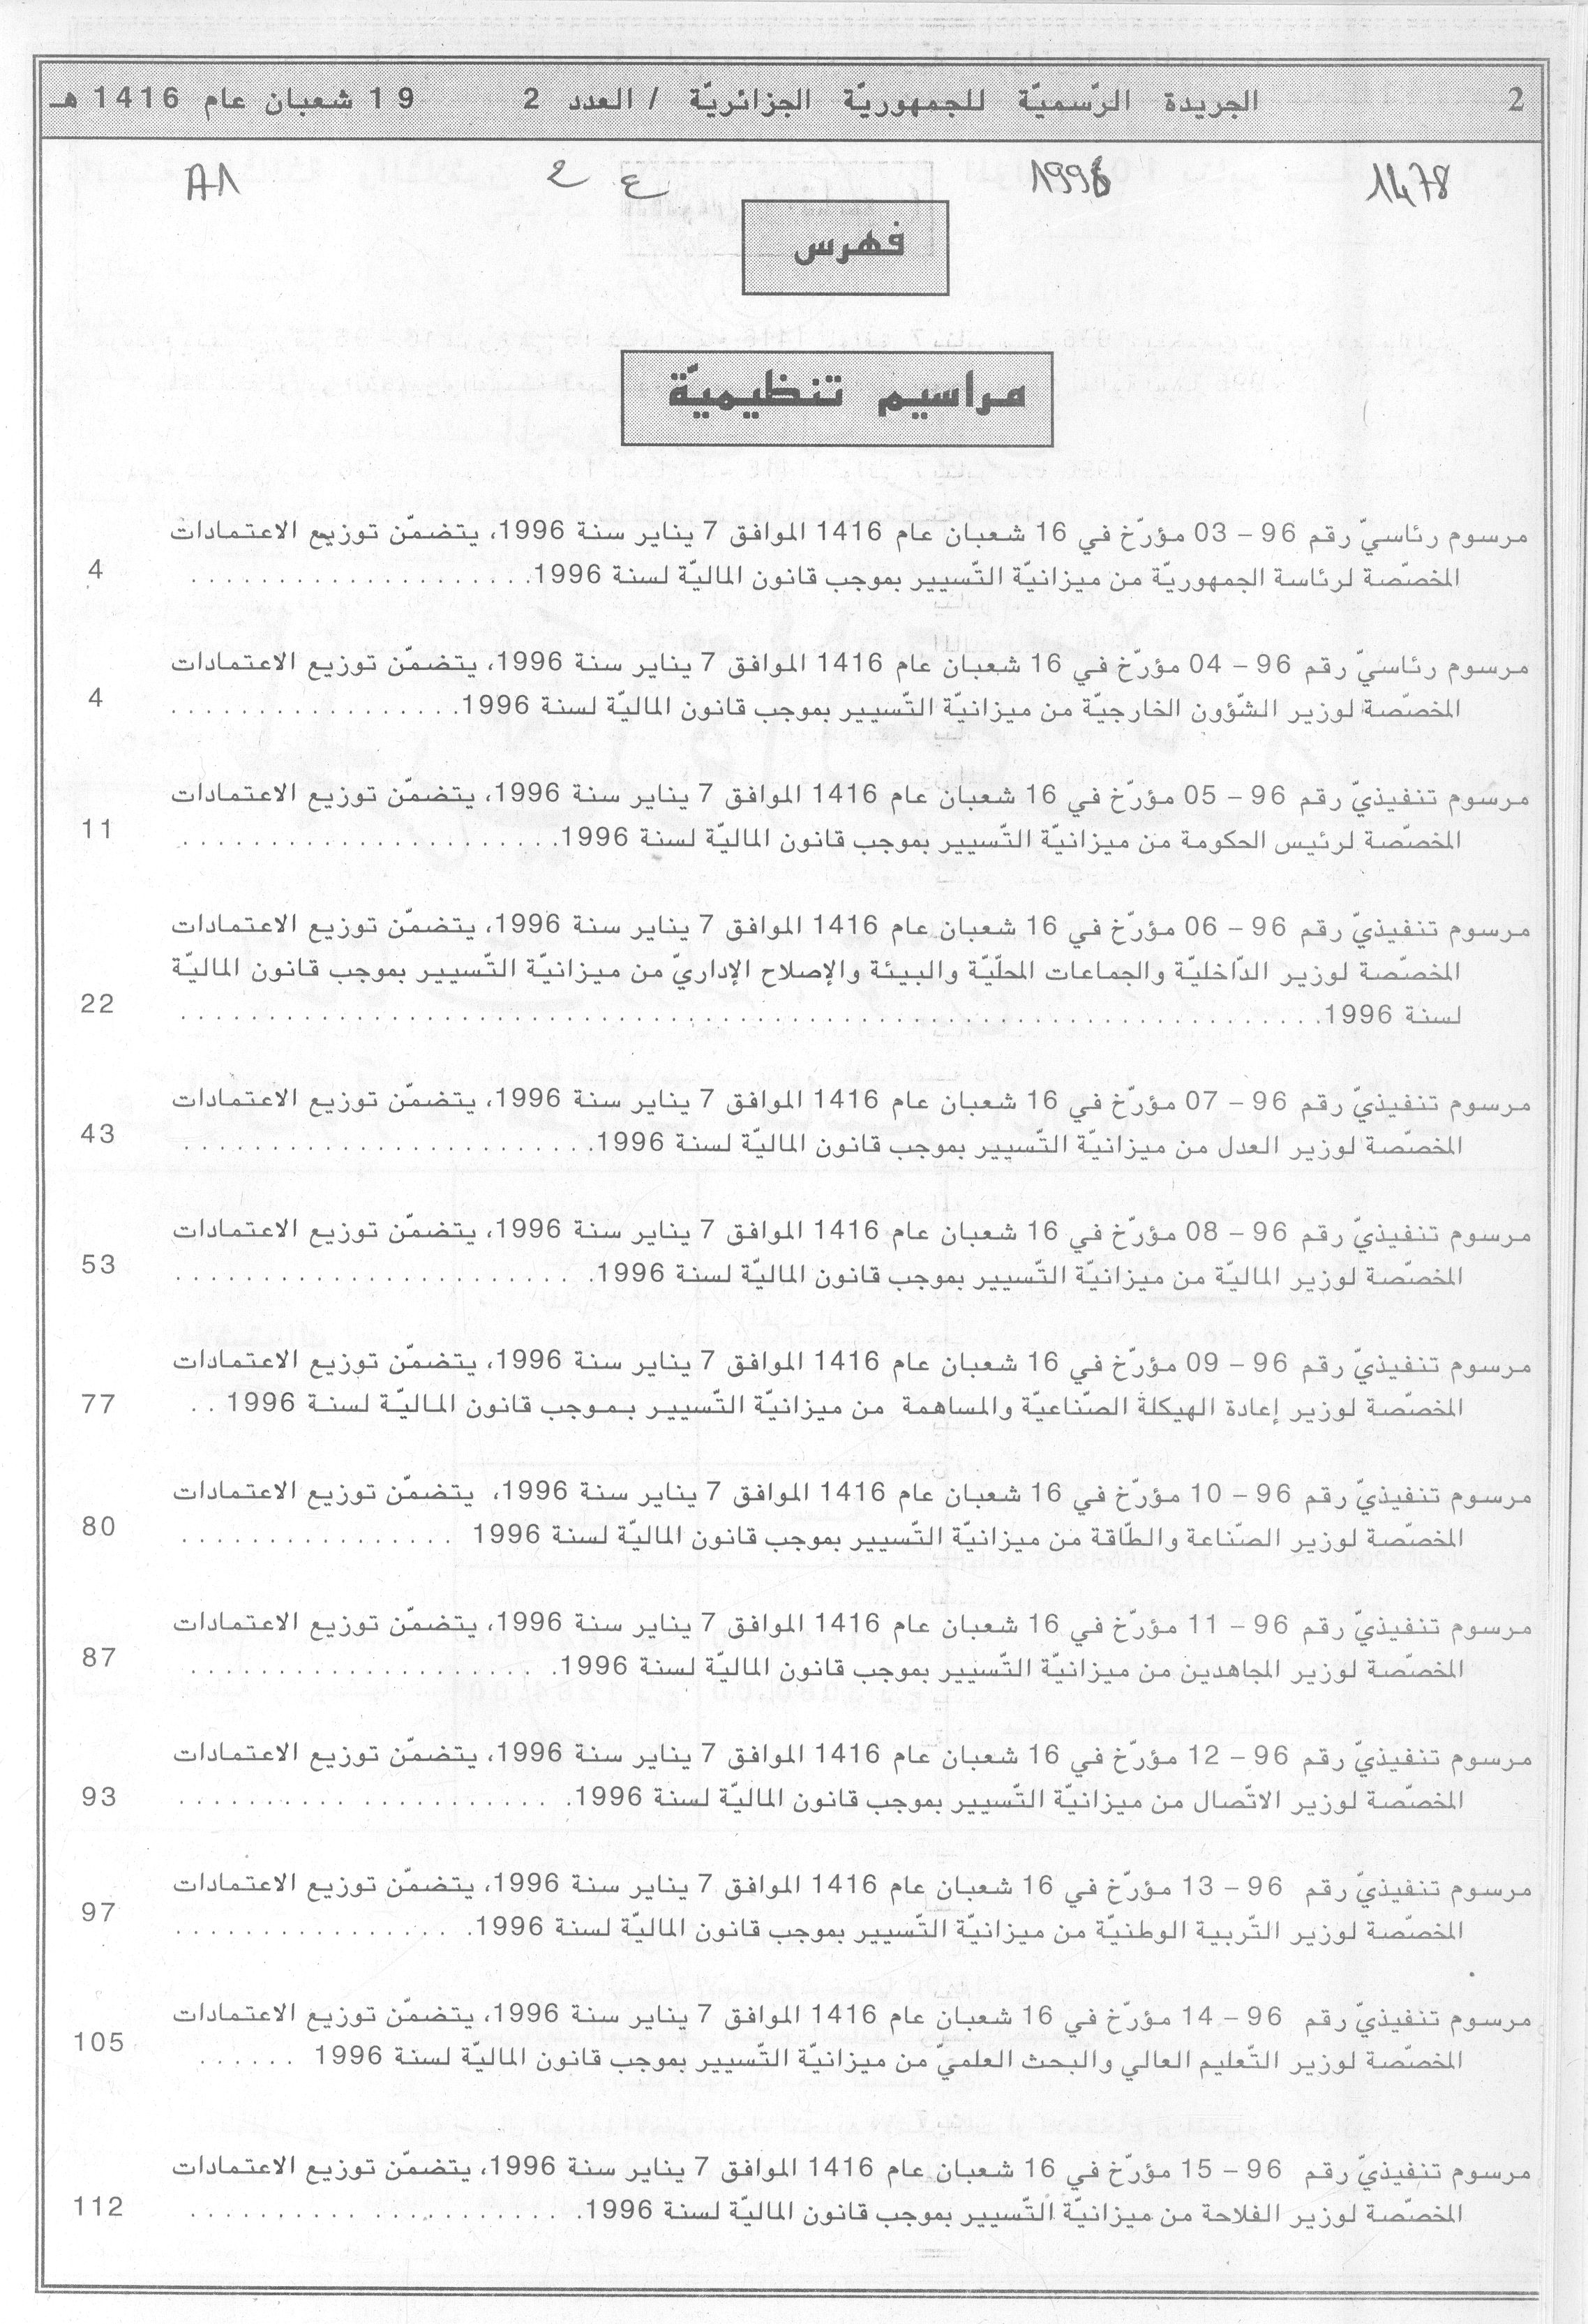 2 الجريدة الرّسميّة للجمهوريّة الجزائريّة / العدد 2 19 شعبان عام 1416 هـ
1478 1996 ع 2 A1
فهرس
مراسيم تنظيميّة
مرسوم رئاسيّ رقم 96 – 03 مؤرّخ في 16 شعبان عام 1416 الموافق 7 يناير سنة 1996، يتضمّن توزيع الاعتمادات
المخصّصة لرئاسة الجمهوريّة من ميزانيّة التّسيير بموجب قانون الماليّة لسنة 1996. . . . . . . . . . . . . . . . . . . . 4
مرسوم رئاسيّ رقم 96 – 04 مؤرّخ في 16 شعبان عام 1416 الموافق 7 يناير سنة 1996، يتضمّن توزيع الاعتمادات
المخصّصة لوزير الشّؤون الخارجيّة من ميزانيّة التّسيير بموجب قانون الماليّة لسنة 1996. . . . . . . . . . . . . . . . . 4
مرسوم تنفيذيّ رقم 96 – 05 مؤرّخ في 16 شعبان عام 1416 الموافق 7 يناير سنة 1996، يتضمّن توزيع الاعتمادات
المخصّصة لرئيس الحكومة من ميزانيّة التّسيير بموجب قانون الماليّة لسنة 1996. . . . . . . . . . . . . . . . . . . . . . 11
مرسوم تنفيذيّ رقم 96 – 06 مؤرّخ في 16 شعبان عام 1416 الموافق 7 يناير سنة 1996، يتضمّن توزيع الاعتمادات
المخصّصة لوزير الدّاخليّة والجماعات المحلّيّة والبيئة والإصلاح الإداريّ من ميزانيّة التّسيير بموجب قانون الماليّة
لسنة 1996. . . . . . . . . . . . . . . . . . . . . . . . . . . . . . . . . . . . . . . . . . . . . . . . . . . . . . . . . . . . . . . . . 22
مرسوم تنفيذيّ رقم 96 – 07 مؤرّخ في 16 شعبان عام 1416 الموافق 7 يناير سنة 1996، يتضمّن توزيع الاعتمادات
المخصّصة لوزير العدل من ميزانيّة التّسيير بموجب قانون الماليّة لسنة 1996. . . . . . . . . . . . . . . . . . . . . . . . 43
مرسوم تنفيذيّ رقم 96 – 08 مؤرّخ في 16 شعبان عام 1416 الموافق 7 يناير سنة 1996، يتضمّن توزيع الاعتمادات
المخصّصة لوزير الماليّة من ميزانيّة التّسيير بموجب قانون الماليّة لسنة 1996. . . . . . . . . . . . . . . . . . . . . . . . 53
مرسوم تنفيذيّ رقم 96 – 09 مؤرّخ في 16 شعبان عام 1416 الموافق 7 يناير سنة 1996، يتضمّن توزيع الاعتمادات
المخصّصة لوزير إعادة الهيكلة الصّناعيّة والمساهمة من ميزانيّة التّسيير بموجب قانون الماليّة لسنة 1996 . . 77
مرسوم تنفيذيّ رقم 96 – 10 مؤرّخ في 16 شعبان عام 1416 الموافق 7 يناير سنة 1996، يتضمّن توزيع الاعتمادات
المخصّصة لوزير الصّناعة والطّاقة من ميزانيّة التّسيير بموجب قانون الماليّة لسنة 1996 . . . . . . . . . . . . . . . . 80
مرسوم تنفيذيّ رقم 96 – 11 مؤرّخ في 16 شعبان عام 1416 الموافق 7 يناير سنة 1996، يتضمّن توزيع الاعتمادات
المخصّصة لوزير المجاهدين من ميزانيّة التّسيير بموجب قانون الماليّة لسنة 1996. . . . . . . . . . . . . . . . . . . . . 87
مرسوم تنفيذيّ رقم 96 – 12 مؤرّخ في 16 شعبان عام 1416 الموافق 7 يناير سنة 1996، يتضمّن توزيع الاعتمادات
المخصّصة لوزير الاتّصال من ميزانيّة التّسيير بموجب قانون الماليّة لسنة 1996. . . . . . . . . . . . . . . . . . . . . . . 93
مرسوم تنفيذيّ رقم 96 – 13 مؤرّخ في 16 شعبان عام 1416 الموافق 7 يناير سنة 1996، يتضمّن توزيع الاعتمادات
المخصّصة لوزير التّربية الوطنيّة من ميزانيّة التّسيير بموجب قانون الماليّة لسنة 1996. . . . . . . . . . . . . . . . . 97
مرسوم تنفيذيّ رقم 96 – 14 مؤرّخ في 16 شعبان عام 1416 الموافق 7 يناير سنة 1996، يتضمّن توزيع الاعتمادات
المخصّصة لوزير التّعليم العالي والبحث العلميّ من ميزانيّة التّسيير بموجب قانون الماليّة لسنة 1996 . . . . . . 105
مرسوم تنفيذيّ رقم 96 – 15 مؤرّخ في 16 شعبان عام 1416 الموافق 7 يناير سنة 1996، يتضمّن توزيع الاعتمادات
المخصّصة لوزير الفلاحة من ميزانيّة التّسيير بموجب قانون الماليّة لسنة 1996. . . . . . . . . . . . . . . . . . . . . . 112